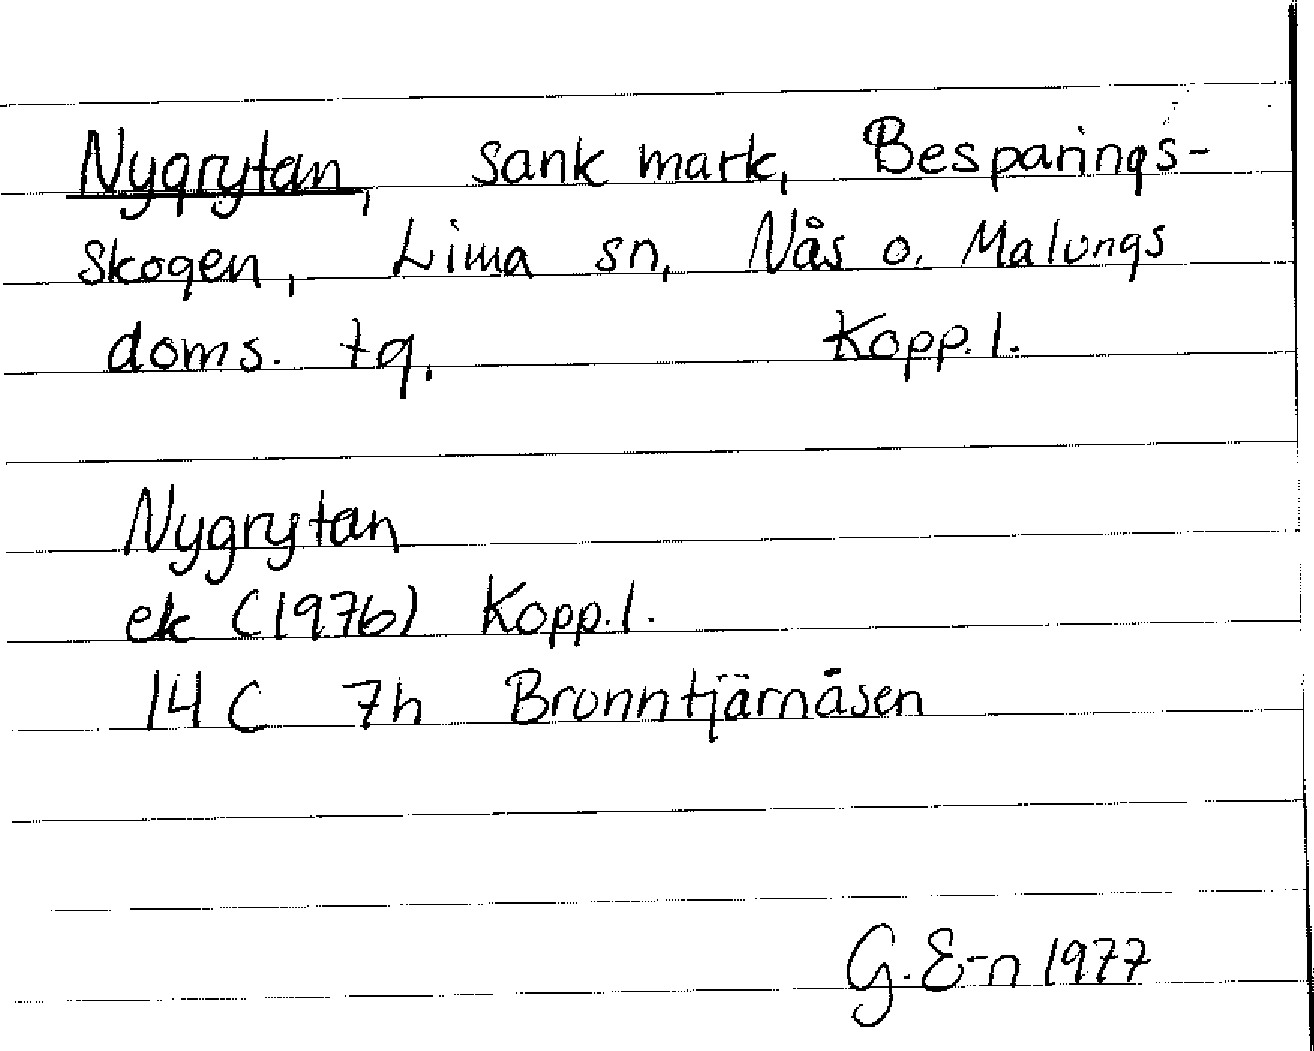 Nygrytan, sank mark, Besparings-
skogen, Lima sn, Nås o. Malungs
doms. tg. Kopp. l.
Nygrytan
ek (1976) Kopp. l.
14 C 7h Brunntjärnåsen
G. E-n 1977